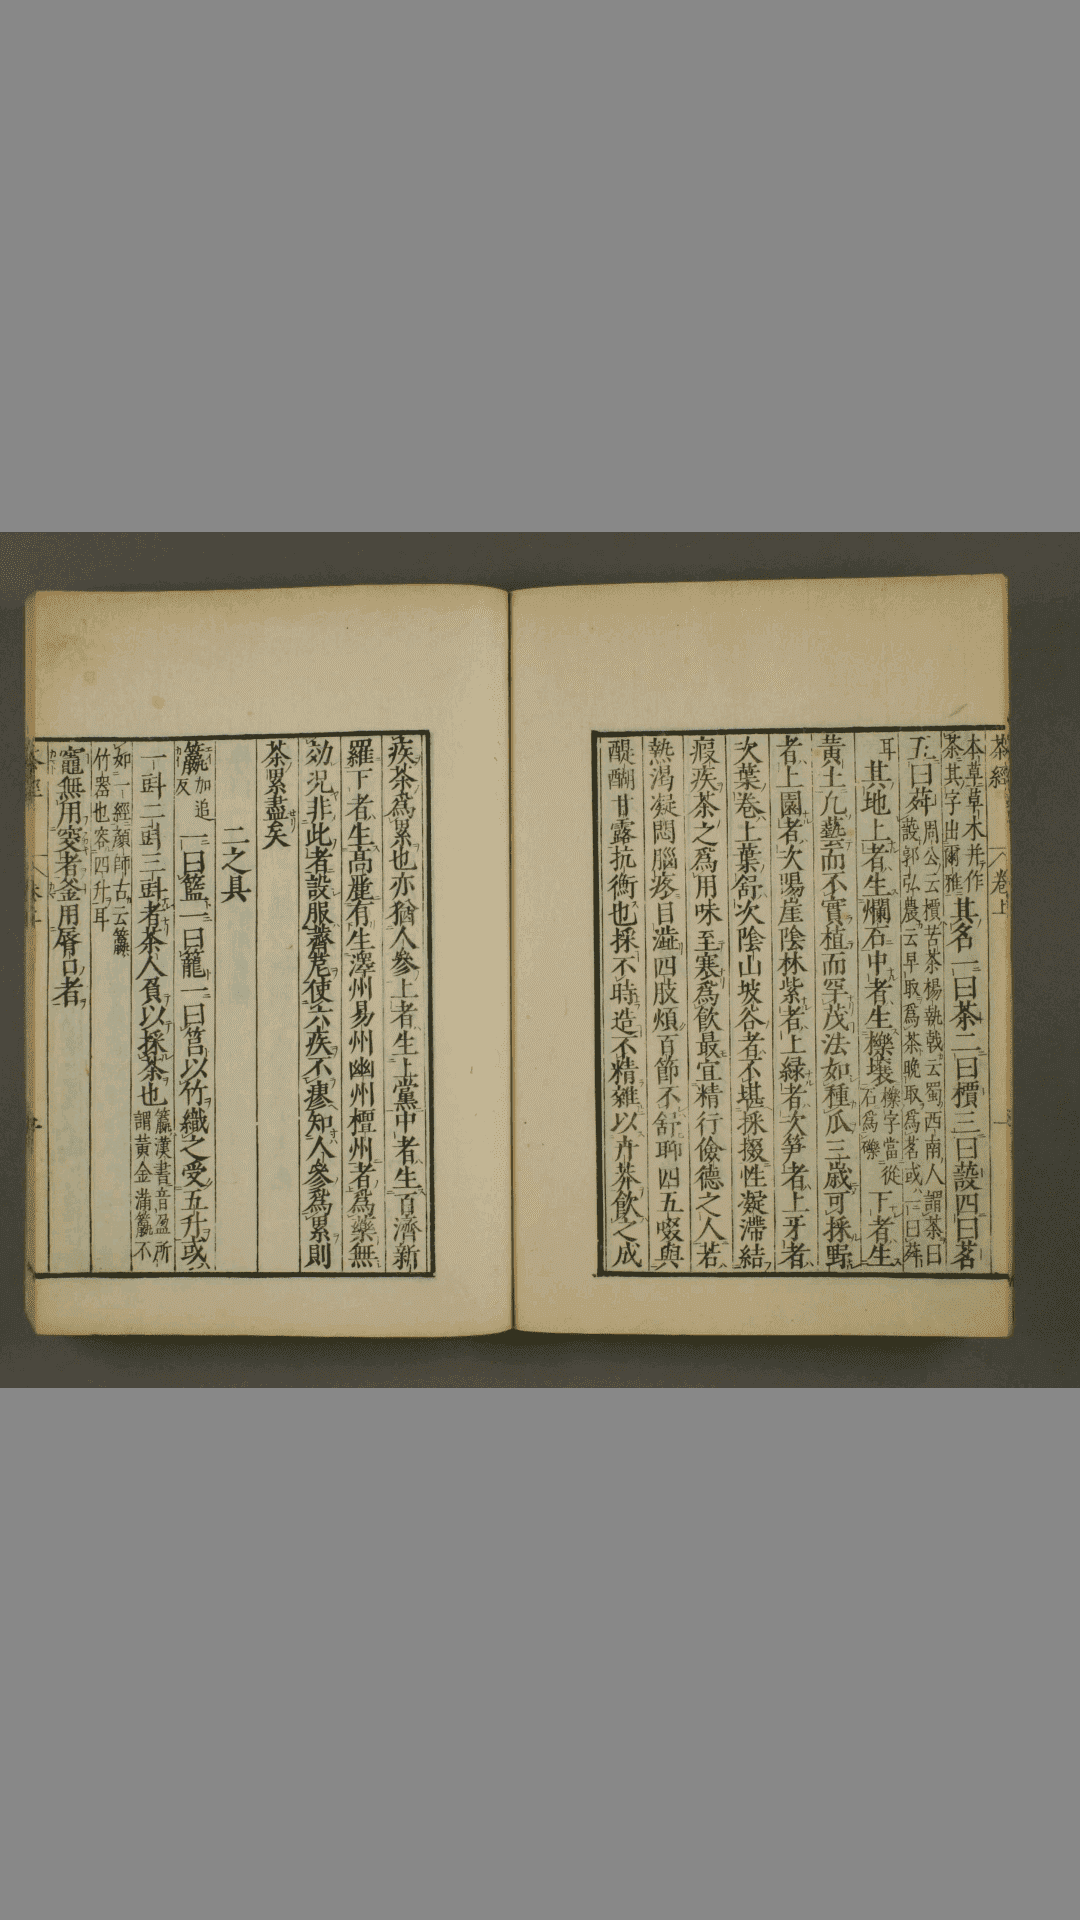 茶經 卷上 一
本草草木并作
茶其字出爾雅
其名一曰茶二曰檟三曰蔎四曰茗
五曰荈
周公云檟苦茶楊執戟云蜀西南人謂茶曰
蔎郭弘農云早取爲茶晚取爲茗或一曰荈
耳
其地上者生爛石中者生櫟壤
櫟字當從
石爲礫
下者生
黃土凡藝而不實植而罕茂法如種瓜三歲可採野
者上園者次陽崖陰林紫者上緑者次笋者上牙者
次葉卷上葉舒次陰山坡谷者不堪採掇性凝滯結
瘕疾茶之爲用味至寒爲飲最宜精行儉德之人若
熱渴凝悶腦疼目澁四肢煩百節不舒聊四五啜與
醍醐甘露抗衡也採不時造不精雜以卉莽飲之成
疾茶爲累也亦猶人參上者生上黨中者生百濟新
羅下者生高麗有生澤州易州幽州檀州者爲藥無
効況非此者設服薺苨使六疾不瘳知人參爲累則
茶累盡矣
二之具
籝
加追
反
一曰籃一曰籠一曰筥以竹織之受五升或
一㪷二㪷三㪷者茶人負以採茶也
籝漢書音盈所
謂黃金滿籝不
如一經顔師古云籝
竹器也容四升耳
竈無用突者釜用脣口者